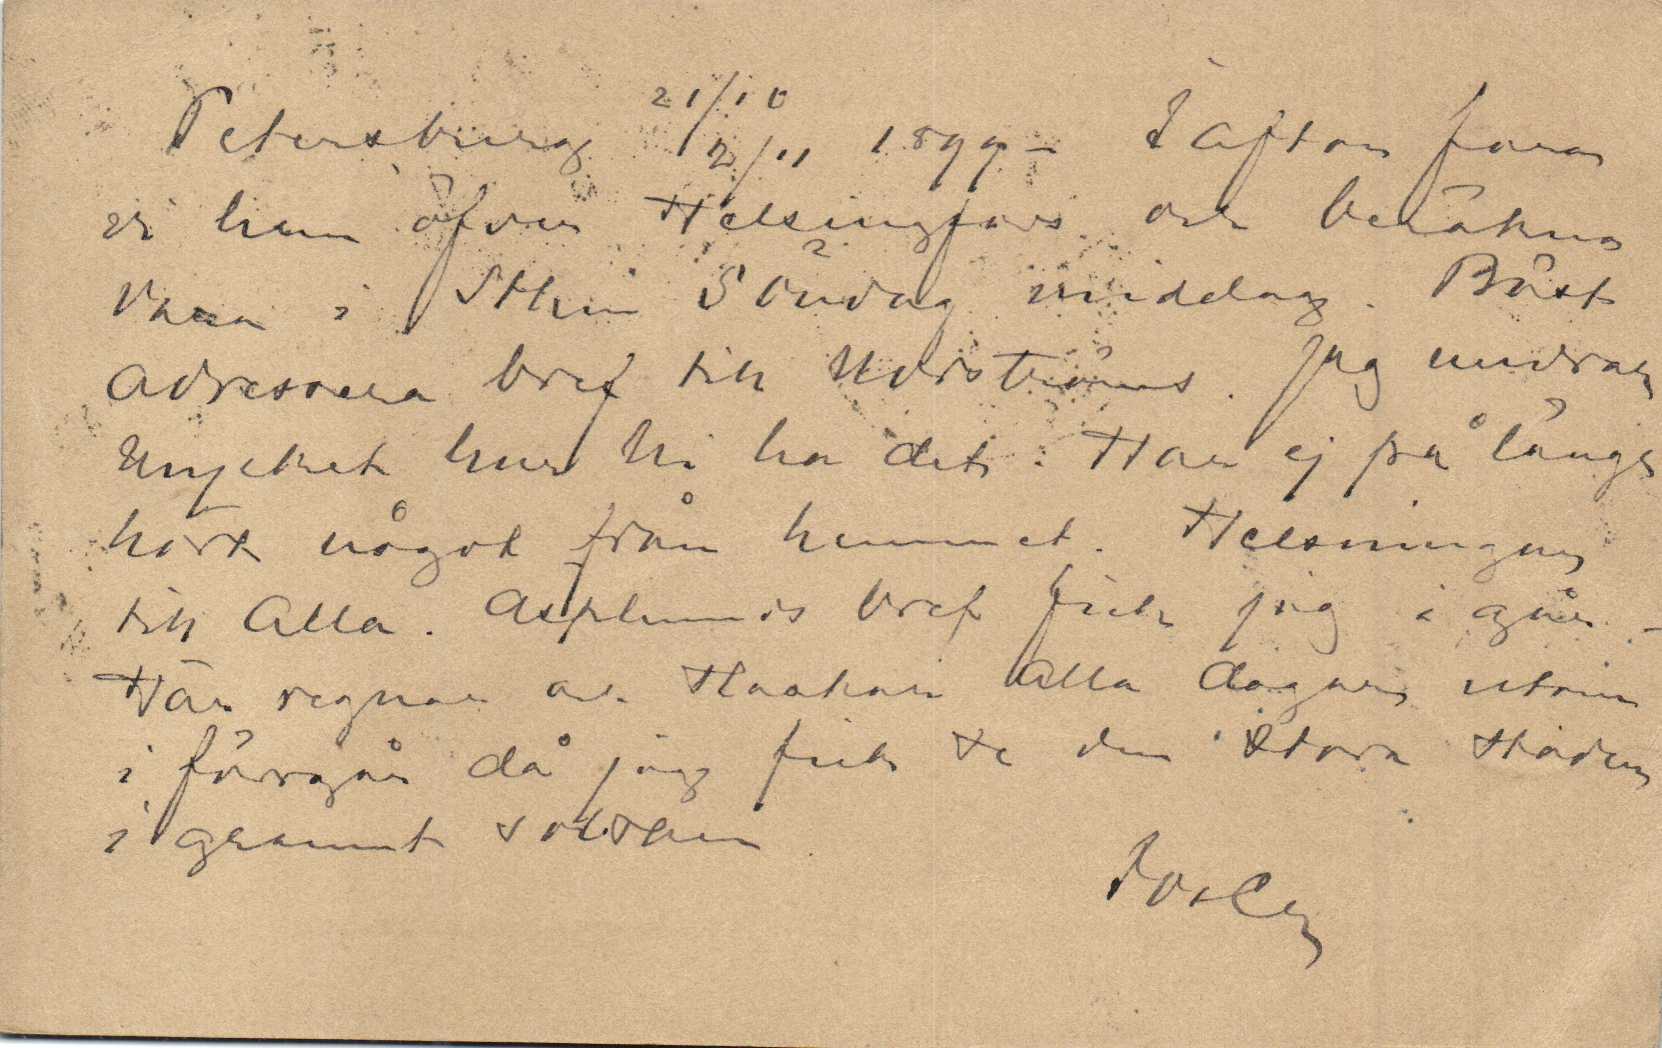 Petersburg 21/10 2/11 1899 – I afton fara
vi hem öfver Helsingfors och beräkna
vara i Sthm Söndag middag. Bäst
adressera bref till Nordströms. Jag undrar
mycket hur Ni ha det. Har ej på länge
hört något från hemmet. Helsningar
till Alla. Asplunds bref fick jag i går –
Här regnar och slaskar alla dagar utom
i förgår då jag fick se den stora staden
i grannt solsken